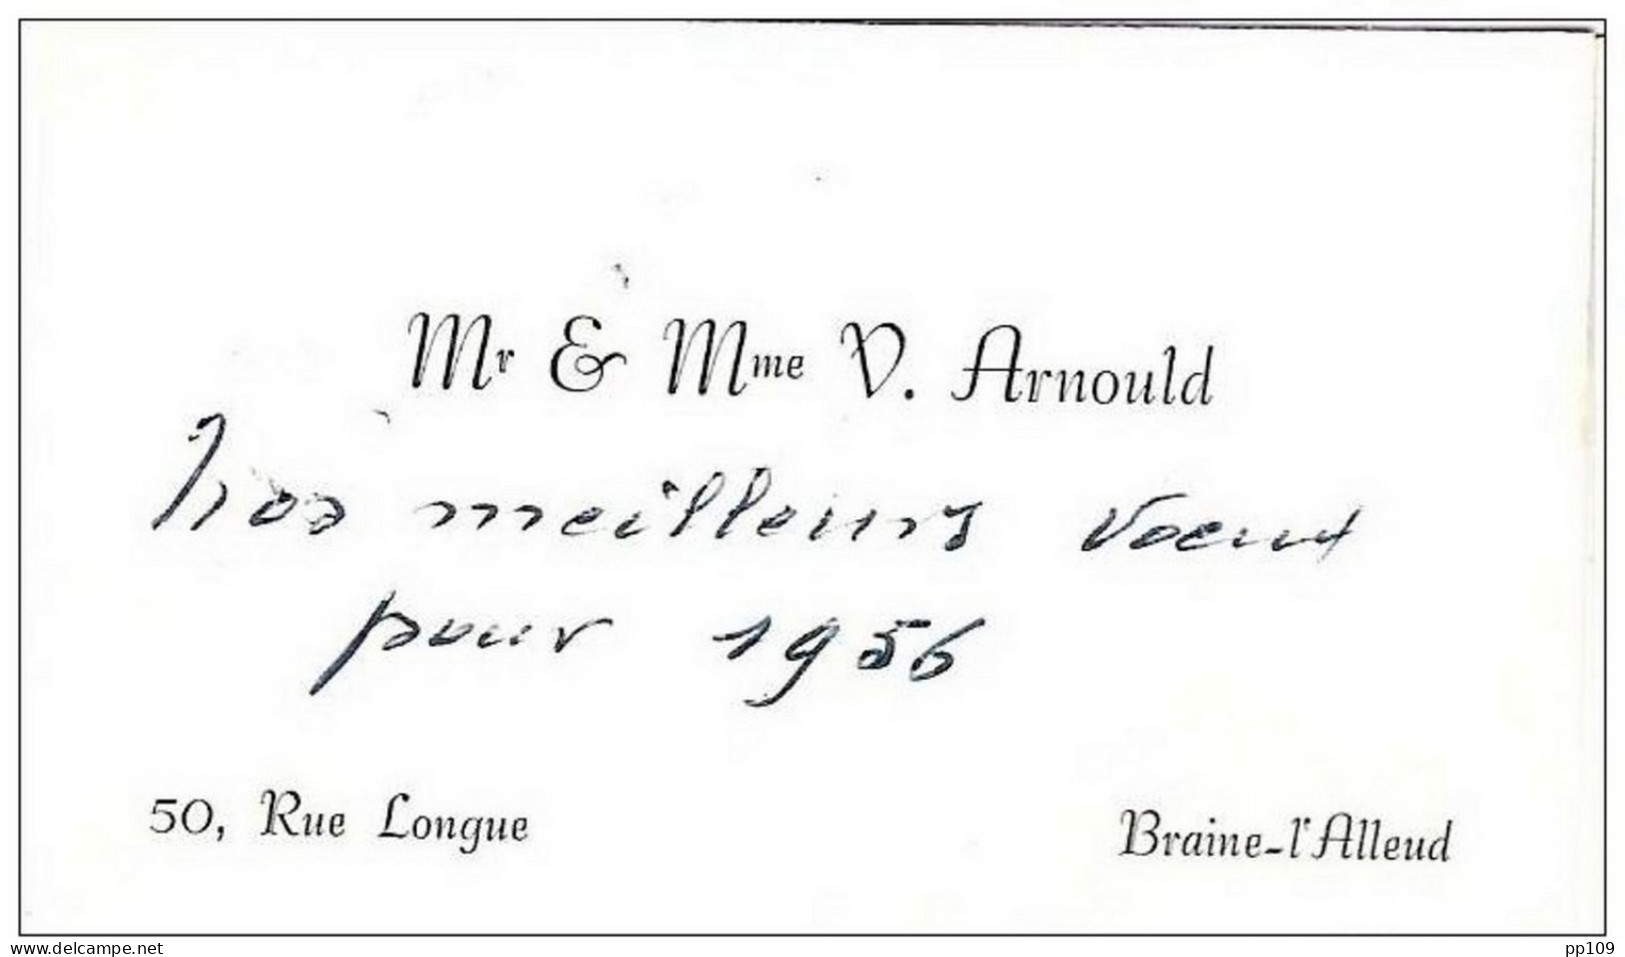 Mr & Mme V. Arnould
Nos meilleurs voeux
pour 1956
50, Rue Longue
Braine-l'Alleud
www.delcampe.net
pp109